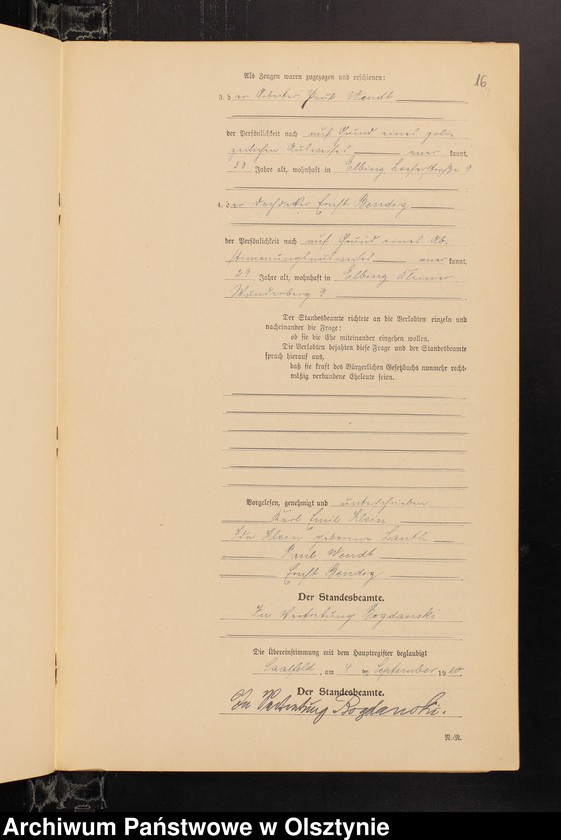 16
Als Zeugen waren zugezogen und erschienen:
3. der Arbeiter Paul Wendt
der Persönlichkeit nach auf Grund eines poli-
zeilichen Ausweises aner kannt,
Jahre alt, wohnhaft in Elbing
4. der Dachdecker Ernst Bendig
der Persönlichkeit nach auf Grund eines Ab-
stammungsausweises aner kannt,
29 Jahre alt, wohnhaft in Elbing Kleiner
Wunderberg 9
Der Standesbeamte richtete an die Verlobten einzeln und
nacheinander die Frage:
ob sie die Ehe miteinander eingehen wollen.
Die Verlobten bejahten diese Frage und der Standesbeamte
sprach hierauf aus,
daß sie kraft des Bürgerlichen Gesetzbuchs nunmehr recht-
mäßig verbundene Eheleute seien.
Vorgelesen, genehmigt und unterschrieben
Karl Emil Klein
Klein geborene
Paul Wendt
Ernst Bendig
Der Standesbeamte.
In Vertretung Bogdanski
Die Übereinstimmung mit dem Hauptregister beglaubigt
Saalfeld, am 4 ten September 19
Der Standesbeamte.
In Vertretung Bogdanski.
R.-R.
Archiwum Państwowe w Olsztynie